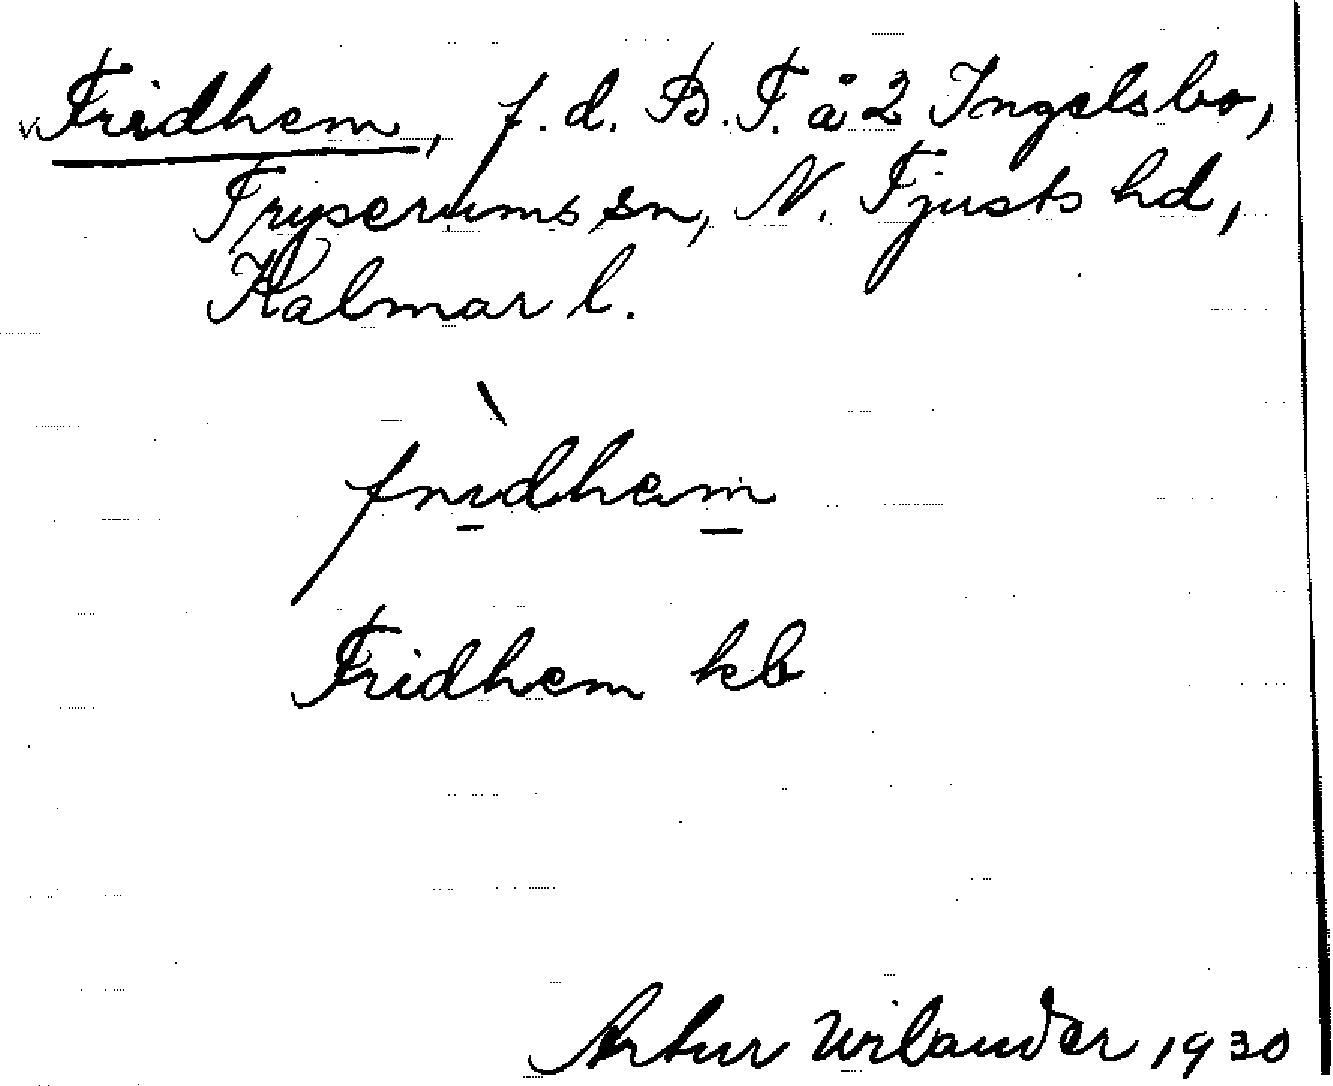 v Fridhem, f. d. B. T. å 2 Ingelsbo,
Tryserums sn, N. Tjusts hd,
Kalmar l.
frìdhem
Fridhem kb
Artur Wilander 1930